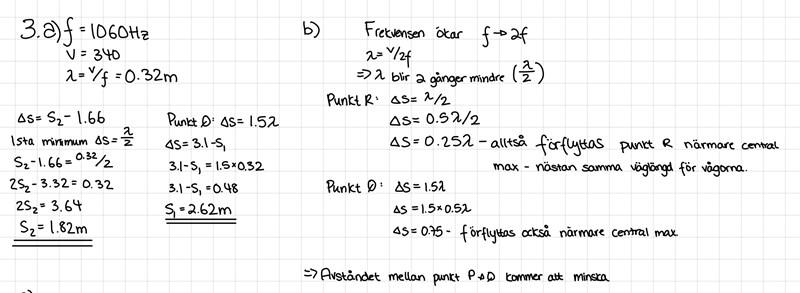 3.a) f = 1060Hz
V = 340
λ = v/f = 0.32m
ΔS = S₂ - 1.66
1sta minimum ΔS = λ/2
S₂ - 1.66 = 0.32/2
2S₂ - 3.32 = 0.32
2S₂ = 3.64
S₂ = 1.82m
Punkt Q: ΔS = 1.5λ
ΔS = 3.1 - S₁
3.1 - S₁ = 1.5×0.32
3.1 - S₁ = 0.48
S₁ = 2.62m
b) Frekvensen ökar f → 2f
λ = v/2f
⇒ λ blir 2 gånger mindre (λ/2)
Punkt R: ΔS = λ/2
ΔS = 0.5λ/2
ΔS = 0.25λ - alltså förflyttas punkt R närmare central
max - nästan samma väglängd för vågorna.
Punkt Q: ΔS = 1.5λ
ΔS = 1.5×0.5λ
ΔS = 0.75 - förflyttas också närmare central max
⇒ Avståndet mellan punkt kommer att minska